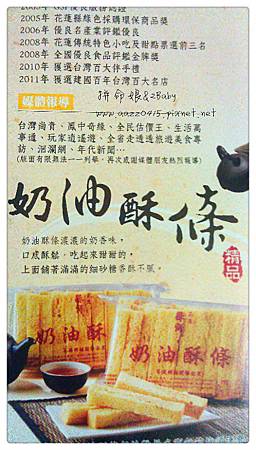 2005年 花蓮縣綠色採購環保商品獎
2006年 優良名產業評鑑優良
2008年 花蓮傳統特色小吃及甜點票選前三名
2008年 全國優良食品評鑑金牌獎
2010年 獲選台灣百大伴手禮
2011年 獲選建國百年台灣百大名店
媒體報導
拼命娘&2Baby
www.aazz0415.pixnet.net
台灣尚青、鳳中奇緣、全民估價王、生活萬
事通、玩家逍遙遊、全省走透透旅遊美食專
訪、洄瀾網、年代新聞…
(版面有限無法一一列舉，再次感謝媒體朋友熱烈報導)
奶油酥條
精品
奶油酥條濃濃的奶香味，
口感酥鬆，吃起來甜甜的，
上面舖著滿滿的細砂糖香酥不膩。
奶油酥條
奶油酥條